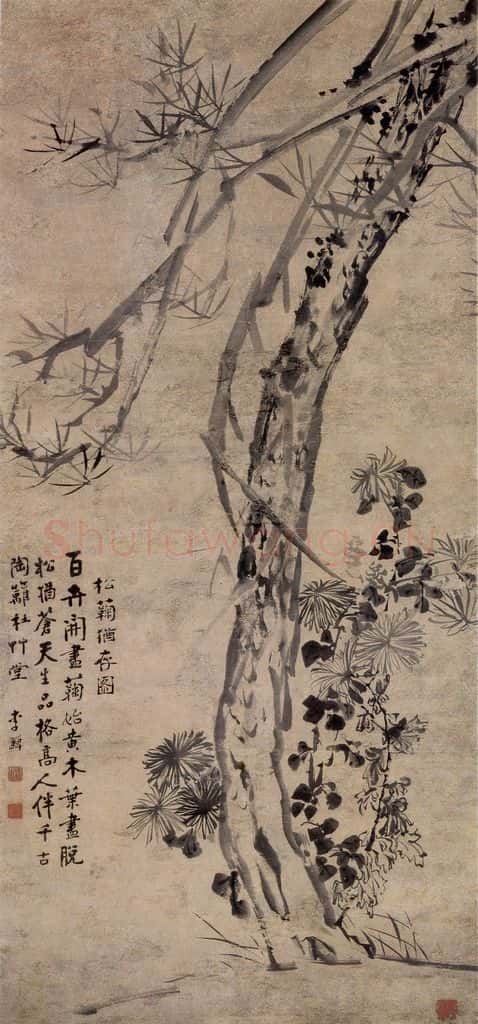 松蘜猶存圖
百卉開盡蘜始黃木葉盡脫
松猶蒼天生品格高人伴千古
陶籬杜艸堂 李鱓
Shufawang.CN